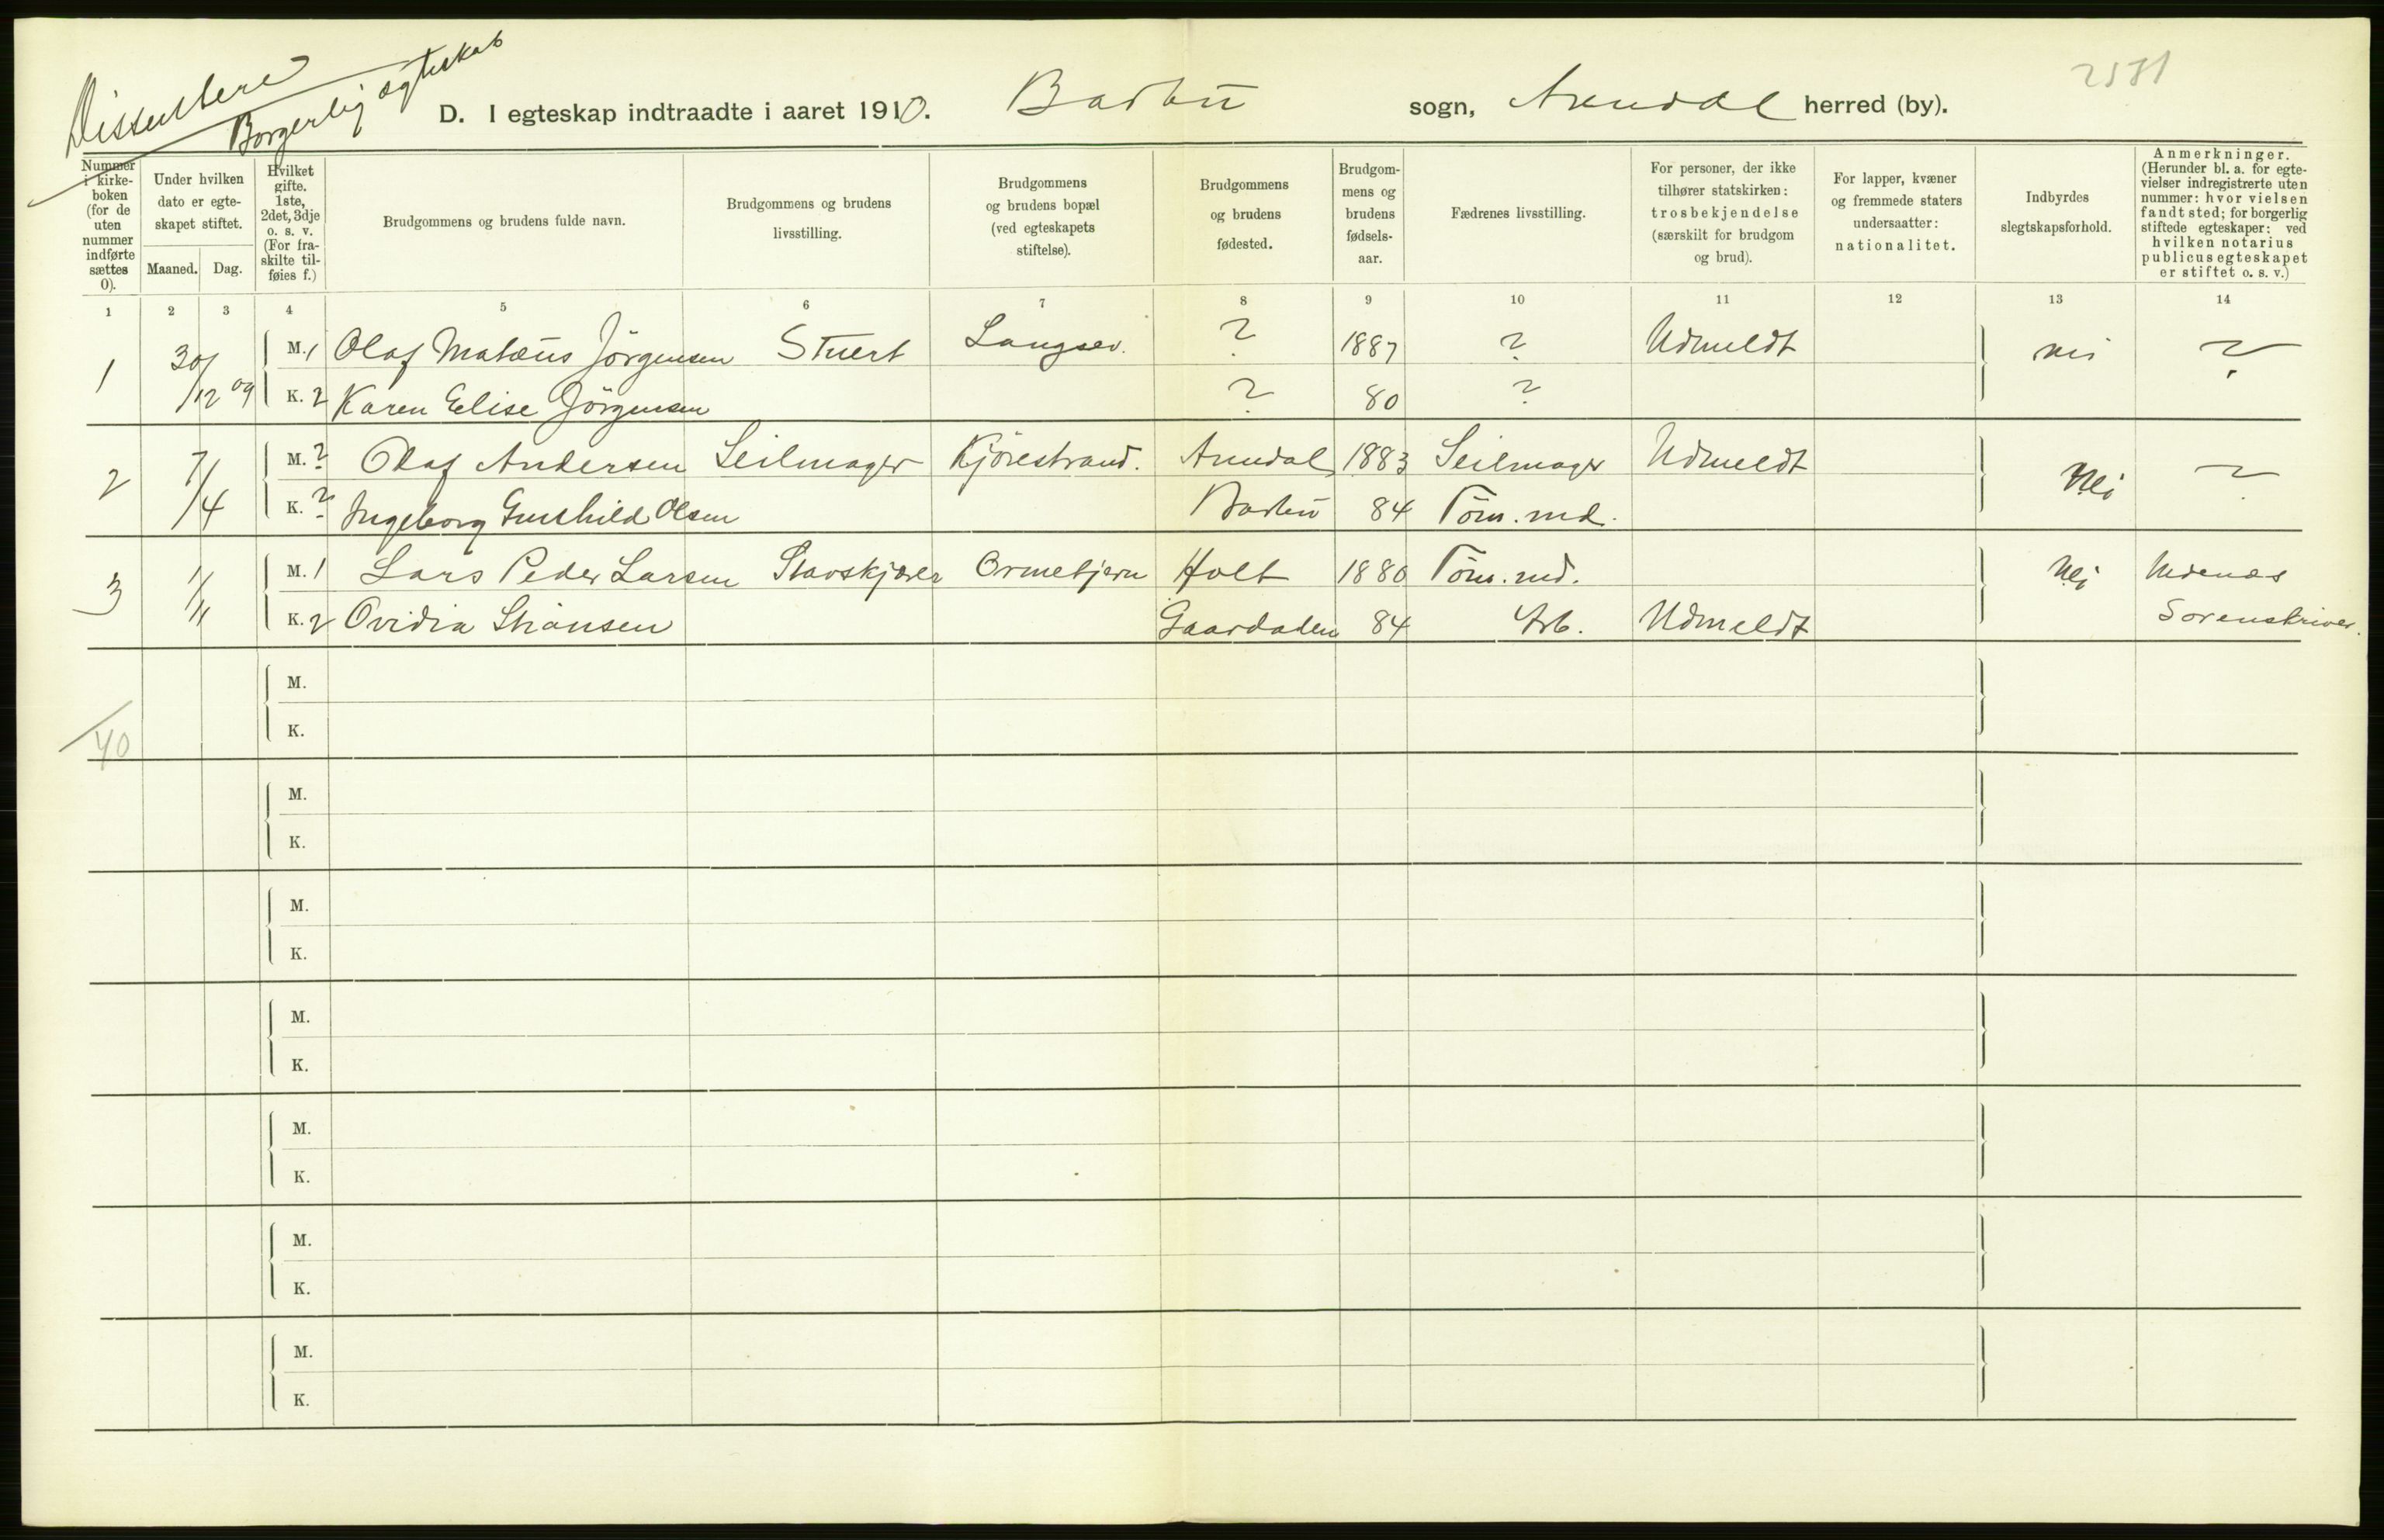 Dissentere
Borgerlig egteskab
2571
D. I egteskap indtraadte i aaret 1910. Barbu sogn, Arendal herred (by).
Nummer i kirke-boken (for de uten nummer indførte sættes 0).
Under hvilken dato er egte-skapet stiftet.
Maaned. Dag.
Hvilket gifte. 1ste, 2det, 3dje o. s. v. (For fra-skilte til-føies f.)
Brudgommens og brudens fulde navn.
Brudgommens og brudens livsstilling.
Brudgommens og brudens bopæl (ved egteskapets stiftelse).
Brudgommens og brudens fødested.
Brudgom-mens og brudens fødsels-aar.
Fædrenes livsstilling.
For personer, der ikke tilhører statskirken: trosbekjendelse (særskilt for brudgom og brud).
For lapper, kvæner og fremmede staters undersaatter: nationalitet.
Indbyrdes slegtskapsforhold.
Anmerkninger. (Herunder bl. a. for egte-vielser indregistrerte uten nummer: hvor vielsen fandt sted; for borgerlig stiftede egteskaper: ved hvilken notarius publicus egteskapet er stiftet o. s. v.)
1 2 3 4 5 6 7 8 9 10 11 12 13 14
1 30/12 09 M. 1 Olaf Matæus Jörgensen Stuert Langsev. ? 1887 ? Udmeldt nei ?
K. 2 Karen Elise Jörgensen ? 80 ?
2 7/4 M. ? Olaf Andersen Seilmager Kjörestrand. Arendal 1883 Seilmager Udmeldt Nei ?
K. ? Ingeborg Gunhild Olsen Barbu 84 Töm. md.
3 1/11 M. 1 Lars Peder Larsen Stavskjærer Ormetjern Holt 1880 Töm. md. Nei Nedenæs
K. 2 Ovidia Stiansen 84 Arb. Udmeldt Sorenskriver.
M.
K.
40
M.
K.
M.
K.
M.
K.
M.
K.
M.
K.
M.
K.